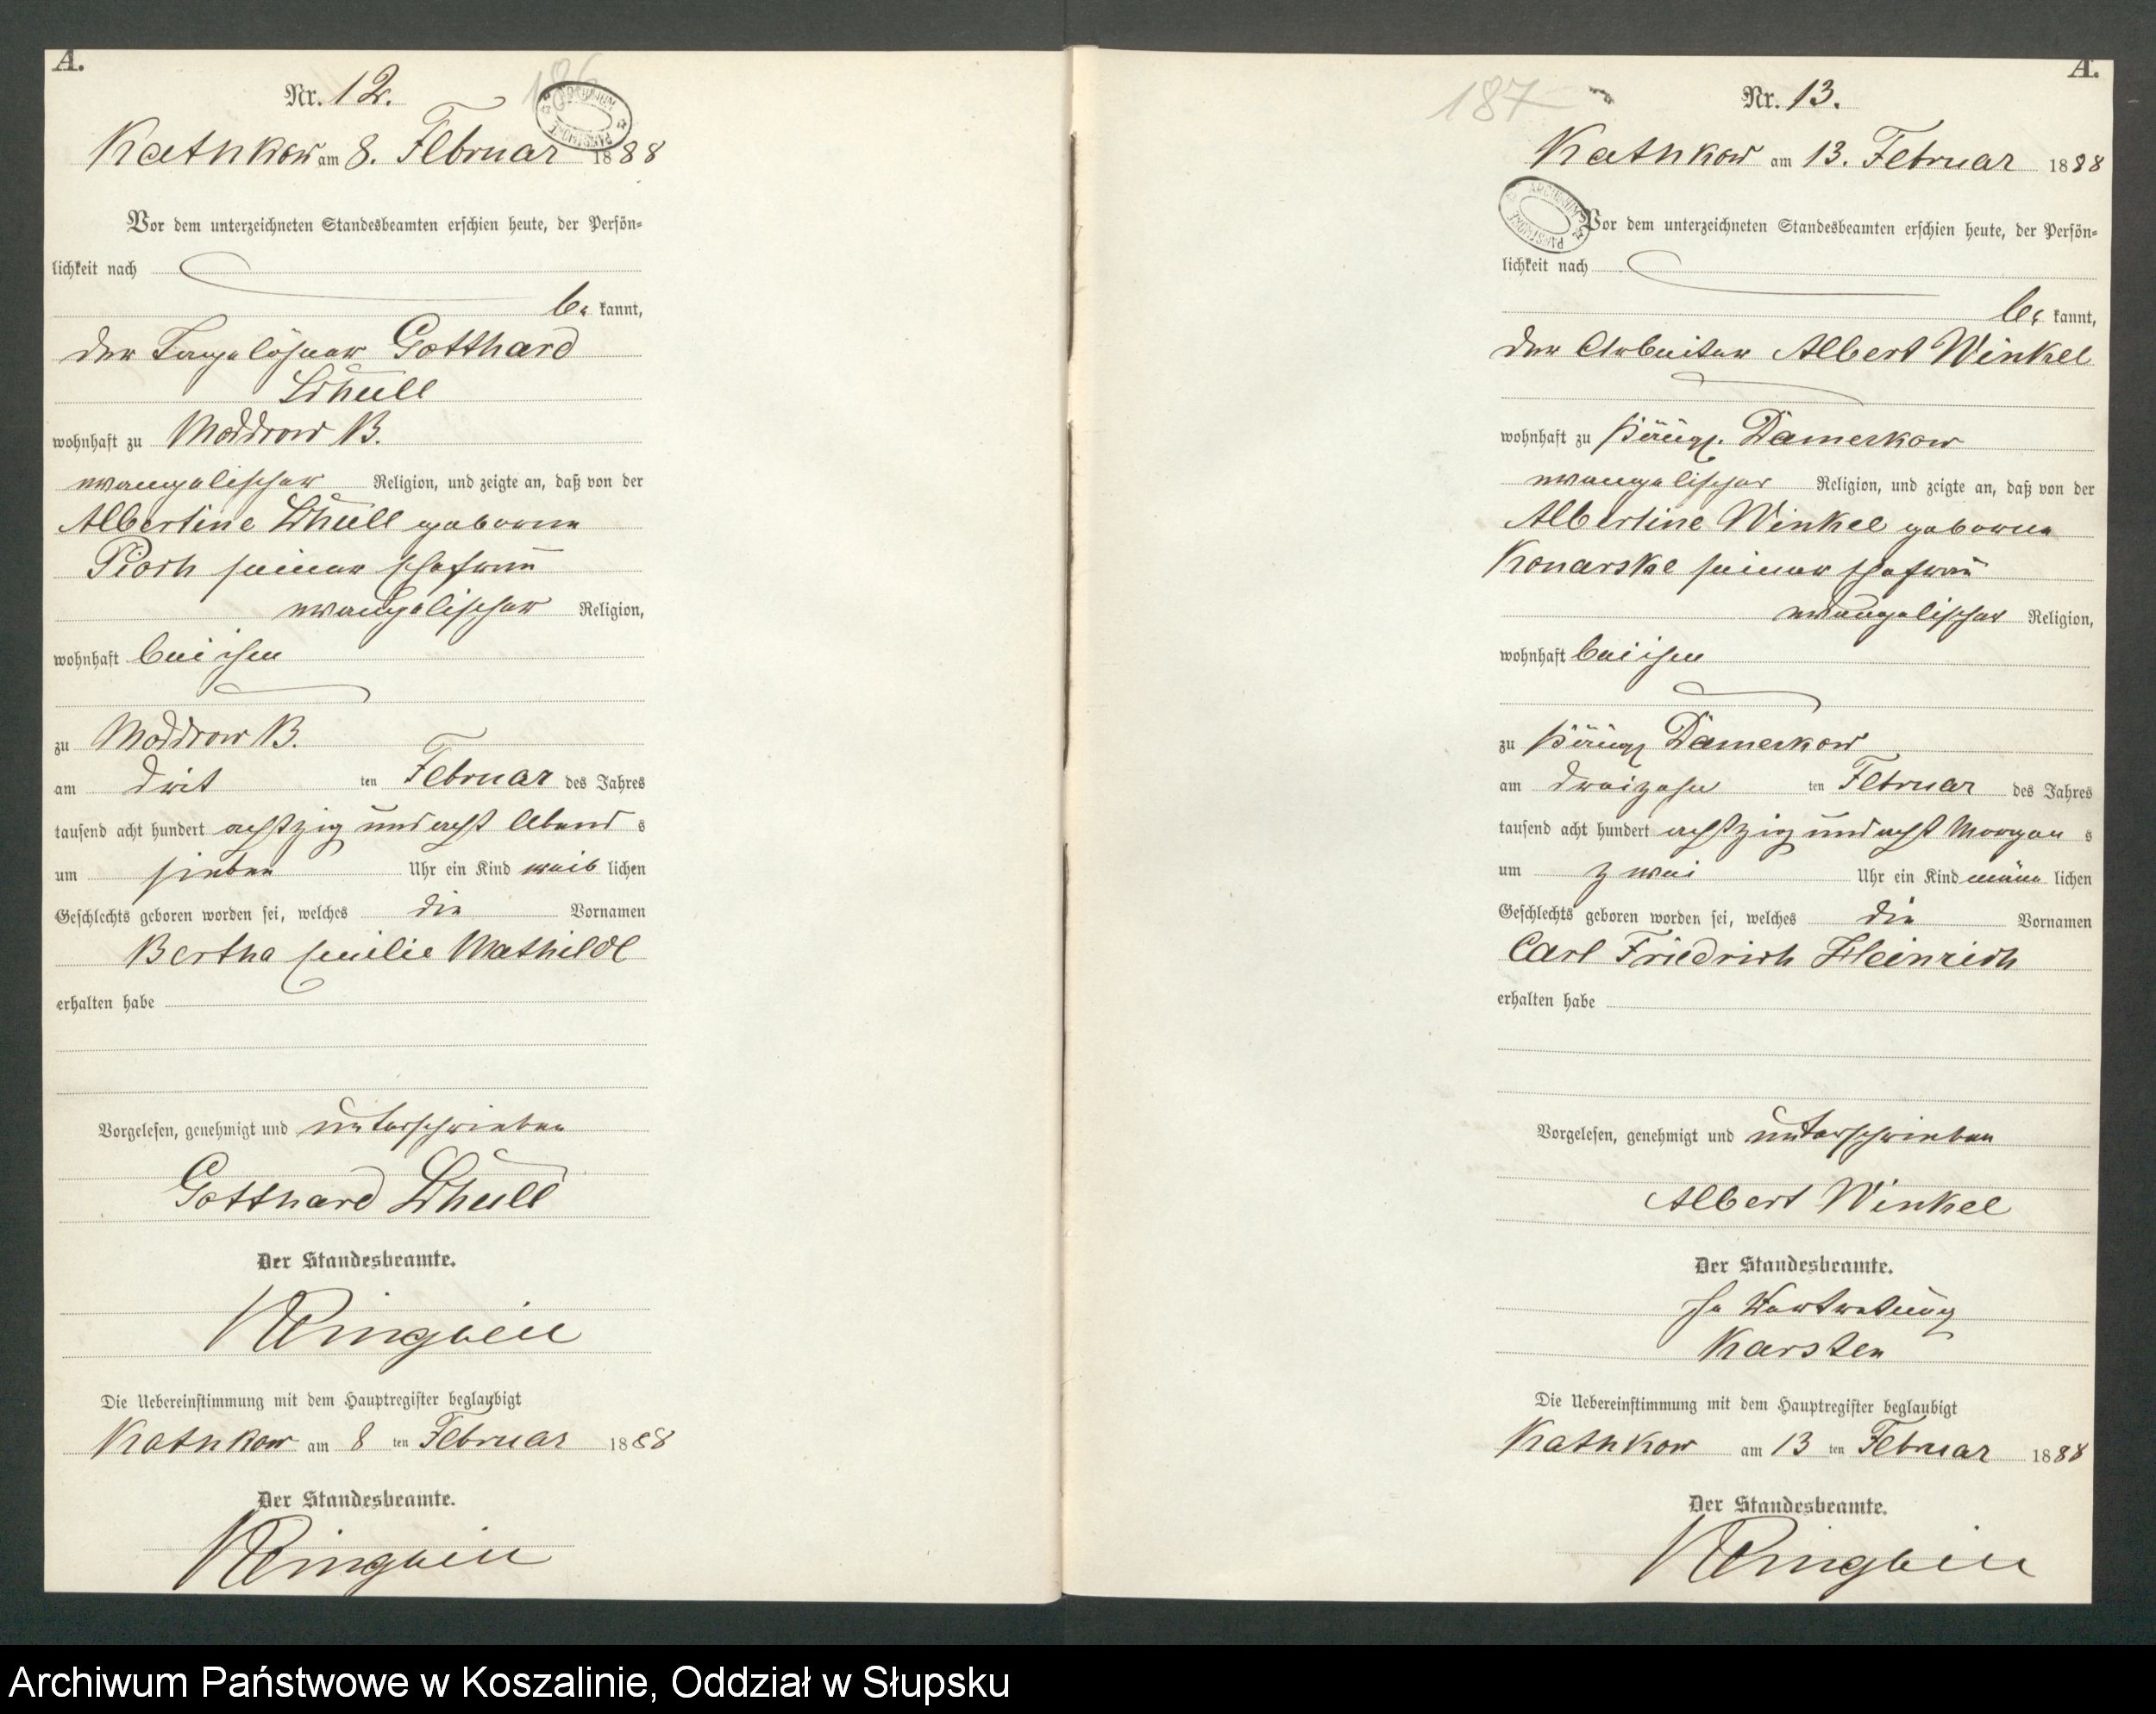 A.
Nr. 12.
186
Kathkow am 8. Februar 1888
Vor dem unterzeichneten Standesbeamten erschien heute, der Persön=
lichkeit nach
be kannt,
der Tagelöhner Gotthard
wohnhaft zu Moddrow B.
evangelischer Religion, und zeigte an, daß von der
Albertine geborene
seiner Ehefrau
evangelischer Religion,
wohnhaft bei ihm
zu Moddrow B.
am drit ten Februar des Jahres
tausend acht hundert achtzig und acht Abend s
um sieben Uhr ein Kind weib lichen
Geschlechts geboren worden sei, welches die Vornamen
Bertha Emilie Mathilde
erhalten habe
Vorgelesen, genehmigt und unterschrieben
Gotthard
Der Standesbeamte.
Die Uebereinstimmung mit dem Hauptregister beglaubigt
Kathkow am 8 ten Februar 1888
Der Standesbeamte.
A.
187
Nr. 13.
Kathkow am 13. Februar 1888
ARCHIWUM PAŃSTWOWE
Vor dem unterzeichneten Standesbeamten erschien heute, der Persön=
lichkeit nach
be kannt,
der Arbeiter Albert Winkel
wohnhaft zu Damerkow
evangelischer Religion, und zeigte an, daß von der
Albertine Winkel geborene
Konarske seiner Ehefrau
evangelischer Religion,
wohnhaft bei ihm
zu Damerkow
am dreizehn ten Februar des Jahres
tausend acht hundert achtzig und acht Morgen s
um zwei Uhr ein Kind männ lichen
Geschlechts geboren worden sei, welches die Vornamen
Carl Friedrich Heinrich
erhalten habe
Vorgelesen, genehmigt und unterschrieben
Albert Winkel
Der Standesbeamte.
In Vertretung
Karsten
Die Uebereinstimmung mit dem Hauptregister beglaubigt
Kathkow am 13 ten Februar 1888
Der Standesbeamte.
Archiwum Państwowe w Koszalinie, Oddział w Słupsku